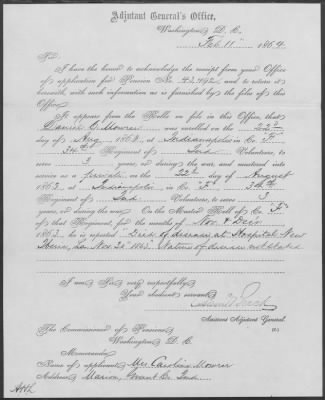 Adjutant General's Office,
Washington, D. C.
Feb. 11" 1864.
Sir:
I have the honor to acknowledge the receipt from your Office
of application for Pension No. 43,492, and to return it
herewith, with such information as is furnished by the files of this
Office.
It appears from the Rolls on file in this Office, that
Daniel Mowrer was enrolled on the 22d
day of Aug, 1862, at Indianapolis in Co. F,
34th Regiment of Ind. Volunteers, to
serve 3 years, or during the war, and mustered into
service as a private on the 22d day of August
1862, at Indianapolis in Co. "F", 34th
Regiment of Ind. Volunteers, to serve 3
years, or during the war. On the Muster Roll of Co. "F"
of that Regiment for the months of Nov. & Dec.,
1863, he is reported "Died of disease at Hospital New
Iberia, La. Nov. 1863. Nature of disease not stated
I am Sir, very respectfully,
Your obedient servant,
Assistant Adjutant General.
The Commissioner of Pensions,
Washington, D. C.
Memoranda:
Name of applicant, Mrs. Caroline Mowrer
Address, Marion, Grant Co. Ind.